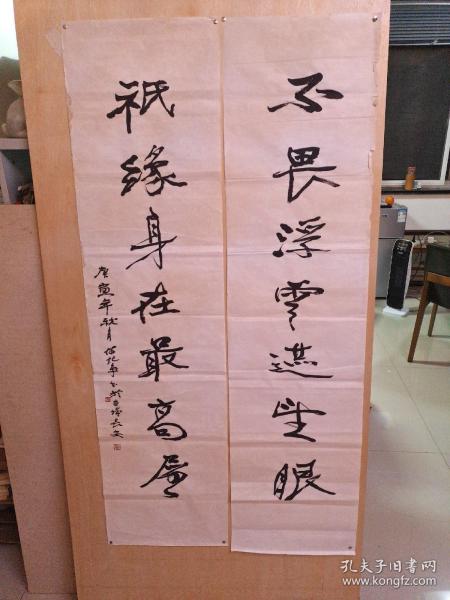 不畏浮雲遮望眼
祇緣身在最高層
庚寅年秋月
孔夫子旧书网
www.kongfz.com